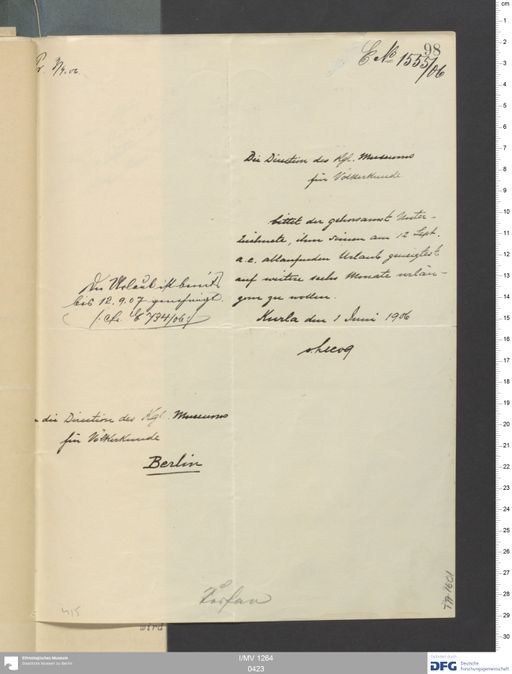 98
E № 1555/06
Die Direction des Kgl. Museums
für Völkerkunde
bittet der gehorsamst Unter-
zeichnete, ihm seinen am 12 Sept.
a.c. ablaufenden Urlaub geneigtest
auf weitere sechs Monate verlän-
gern zu wollen.
Kurla den 1 Juni 1906
v. Lecoq
Der Urlaub ist bereits
bis 12.9.07 genehmigt
(cfr. E 734/06.)
die Direction des Kgl. Museums
für Völkerkunde
Berlin
Turfan
415
wird
cm
1
2
3
4
5
6
7
8
9
10
11
12
13
14
15
16
17
18
19
20
21
22
23
24
25
26
27
28
29
30
Ethnologisches Museum
Staatliche Museen zu Berlin
I/MV 1264
0423
gefördert durch
DFG Deutsche
Forschungsgemeinschaft